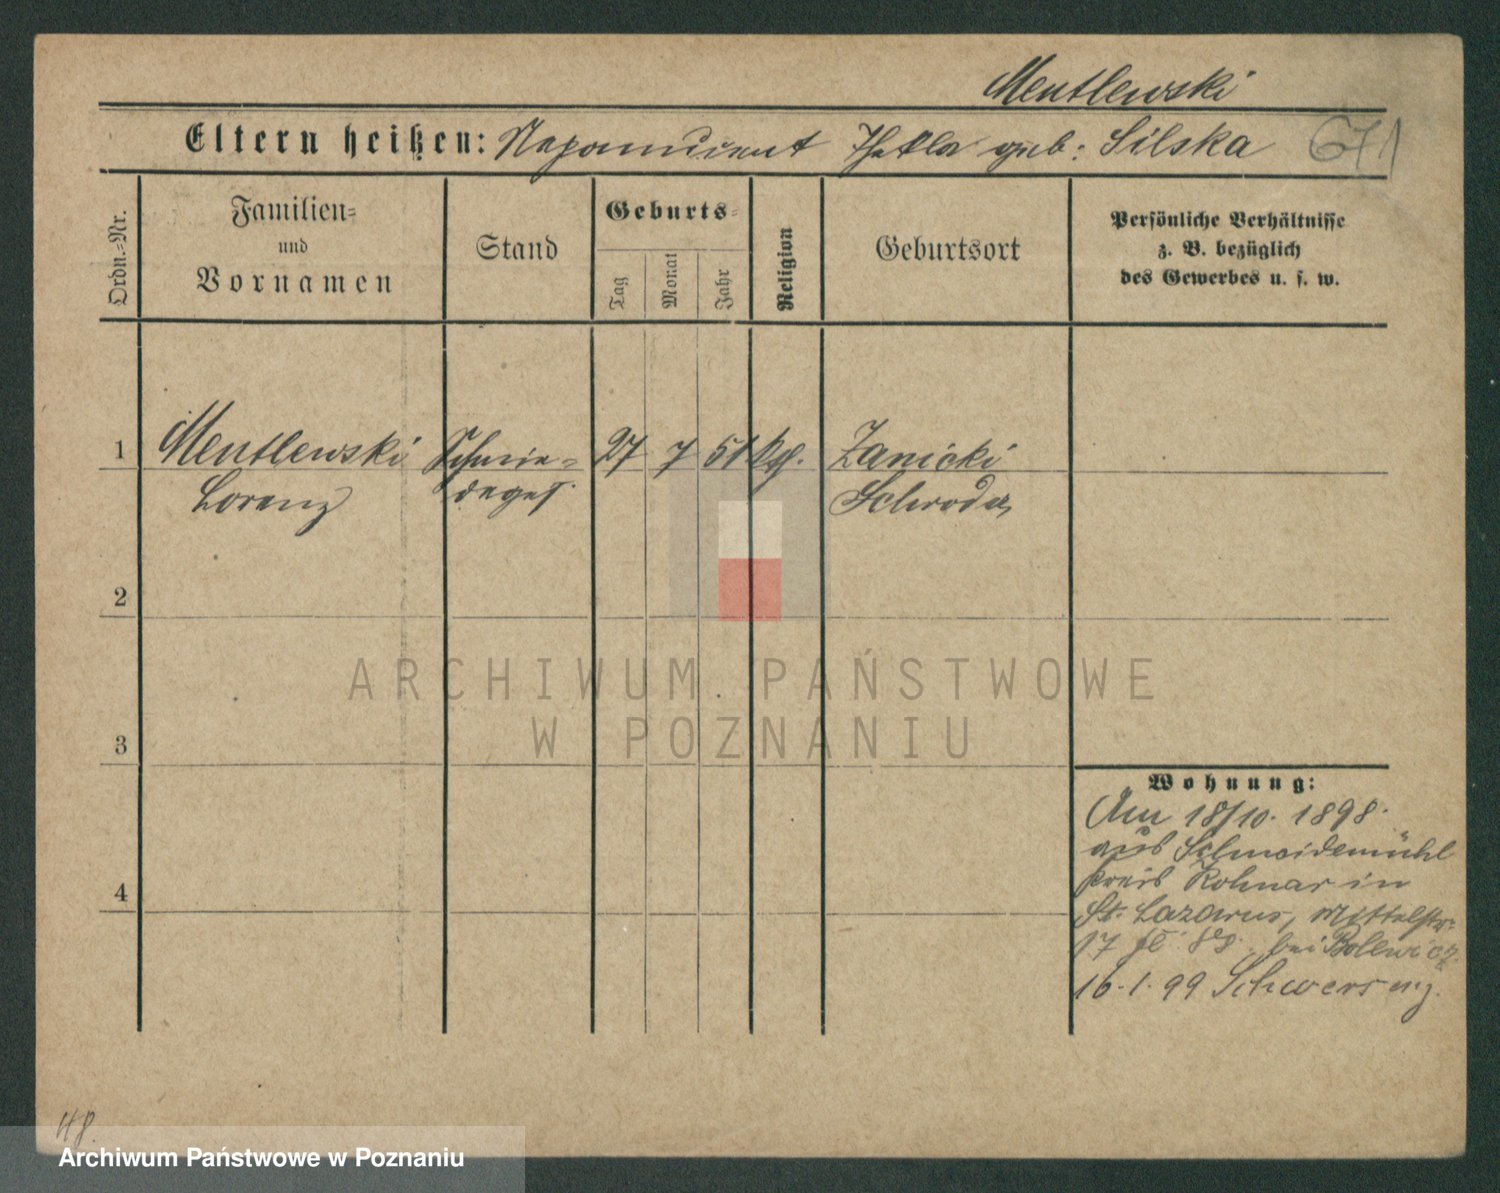 Mentlewski
Eltern heißen: Nepomucent Thekla geb: Silska 671
Ordn.-Nr.
Familien- und Vornamen
Stand
Geburts-
Tag
Monat
Jahr
Religion
Geburtsort
Persönliche Verhältnisse
z. B. bezüglich
des Gewerbes u. s. w.
1 Mentlewski Schmie- 27 7 51 kth. Zanicki
Lorenz deges. Schroda
2
3
4
Wohnung:
Am 18/10. 1898.
aus Schneidemühl
Kreis Kolmar in
St. Lazarus, Mittelstr.
17 bei
16.1.99 Schwersenz.
ARCHIWUM PAŃSTWOWE
W POZNANIU
Archiwum Państwowe w Poznaniu